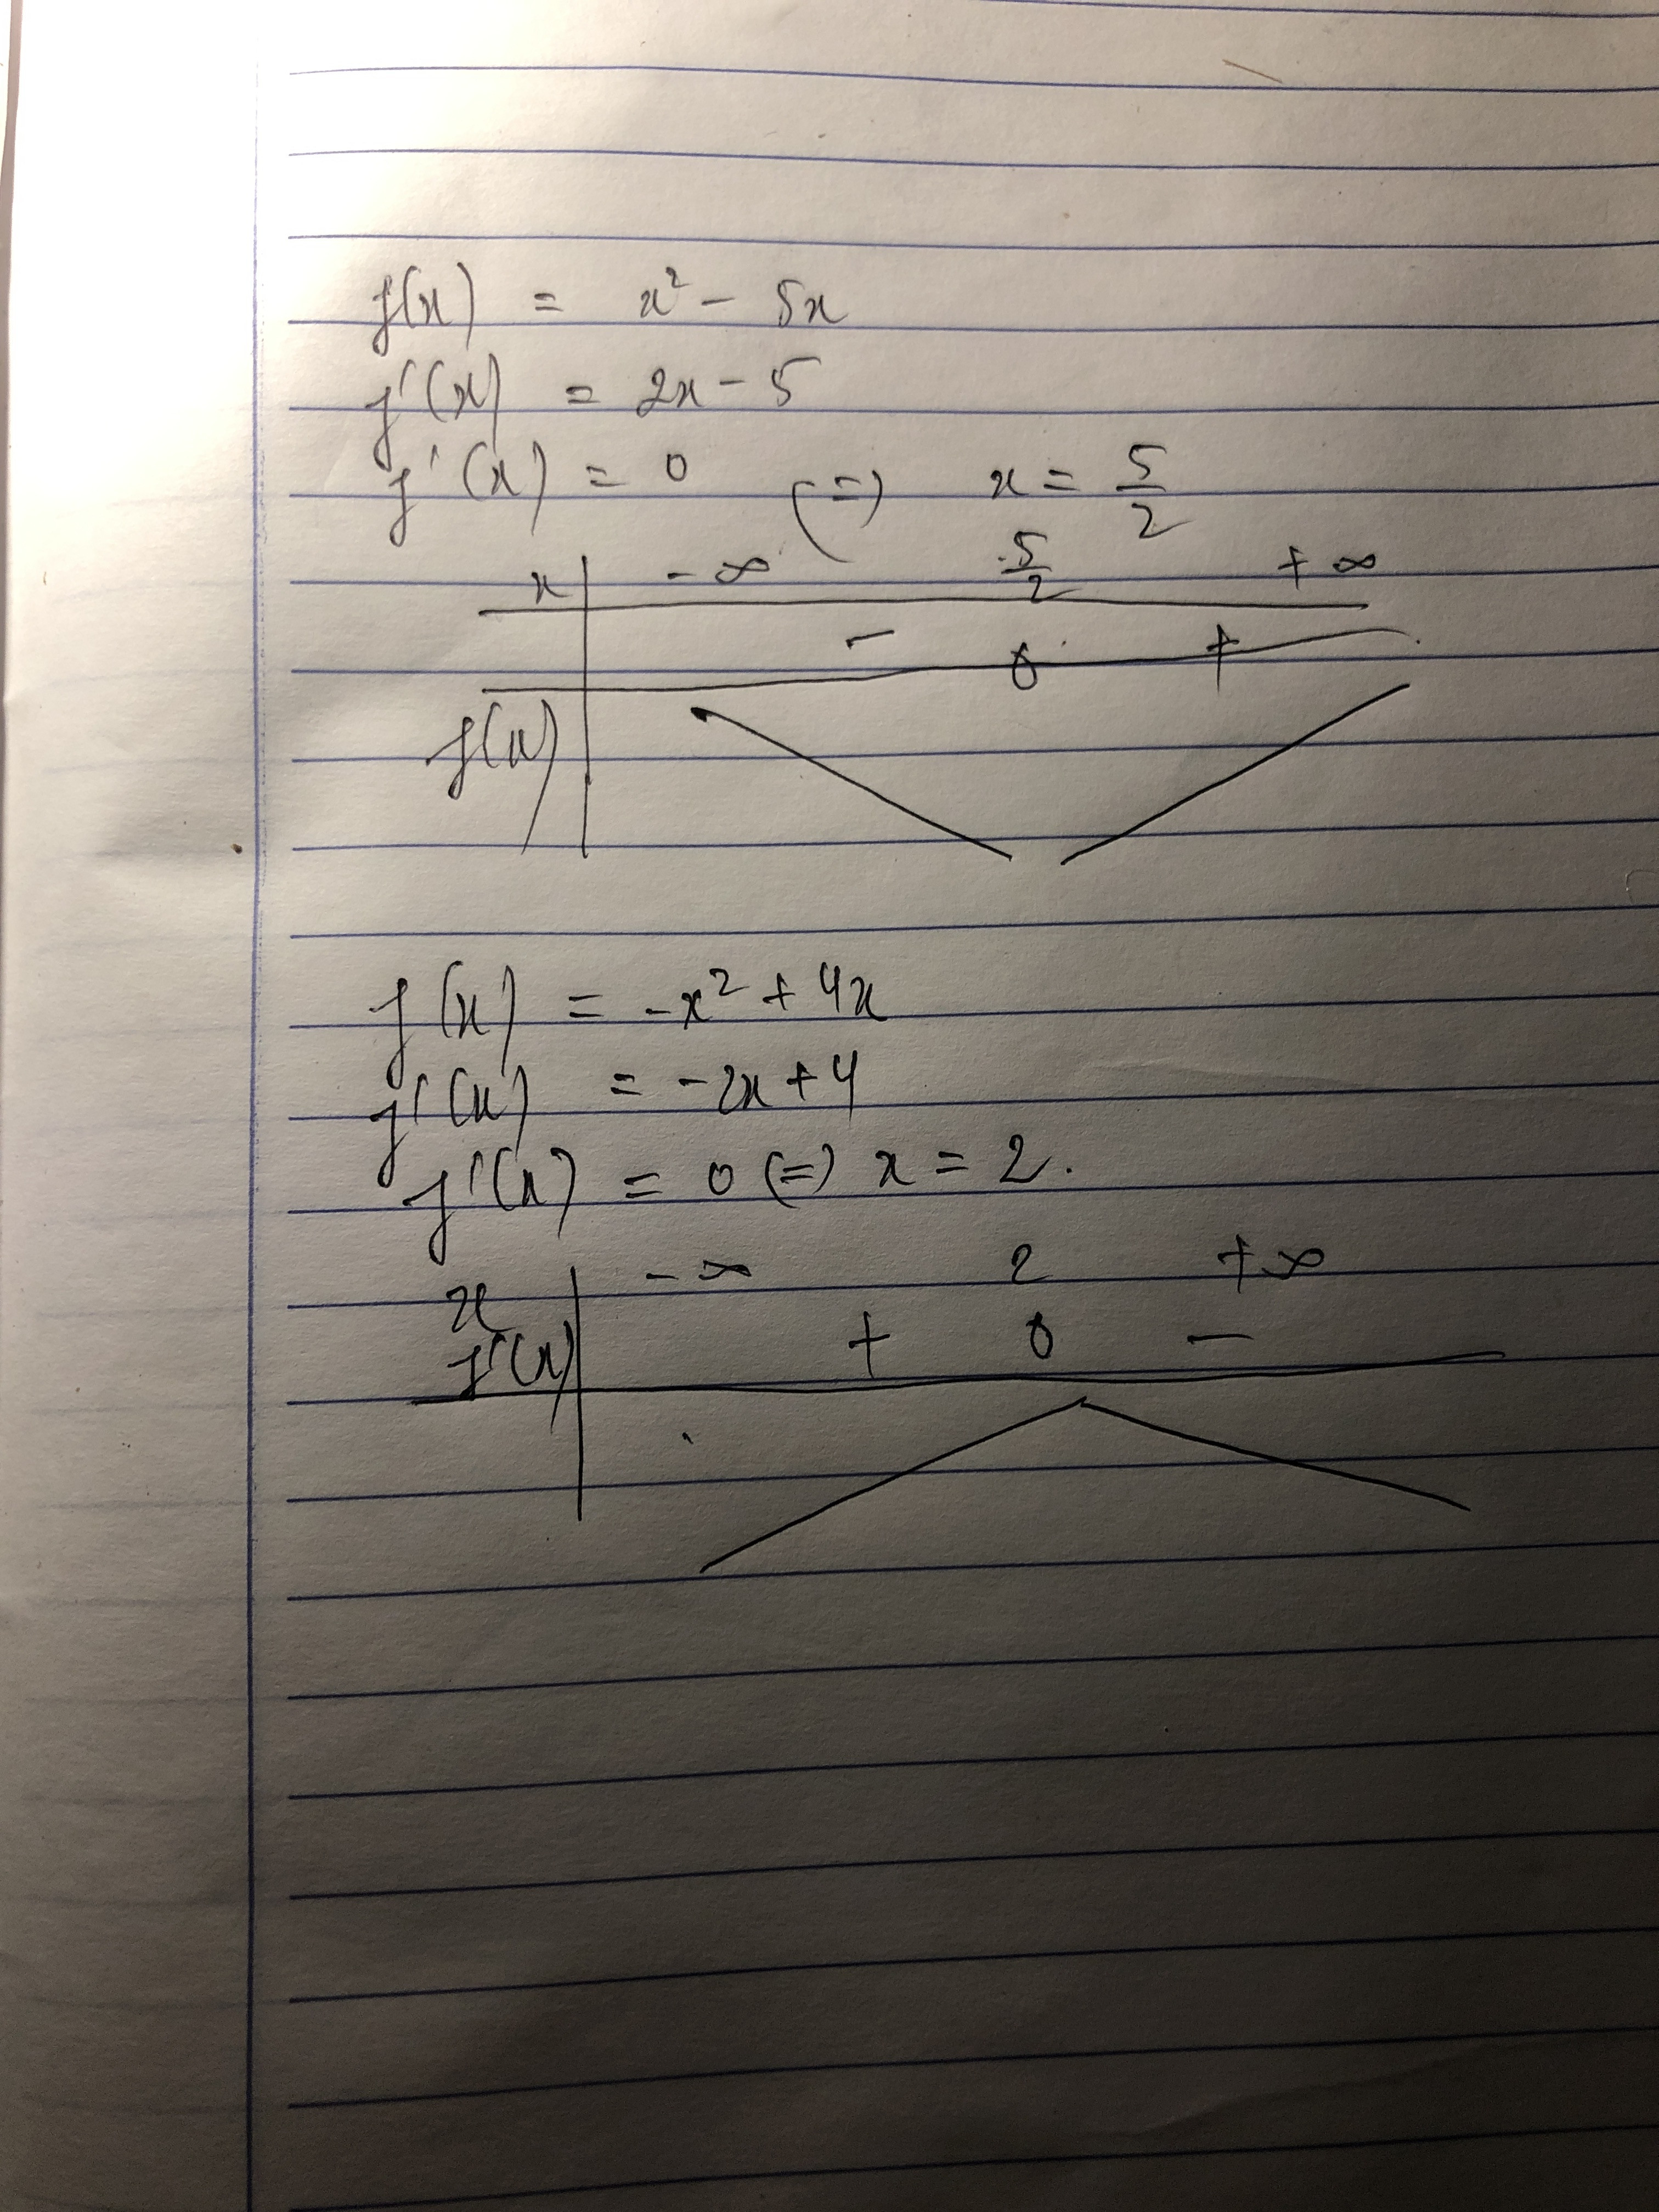 f(x) = x² - 5x
f'(x) = 2x - 5
f'(x) = 0 (=) x = 5/2
x | -∞ 5/2 +∞
- 0 +
f(x)
f(x) = -x² + 4x
f'(x) = -2x + 4
f'(x) = 0 (=) x = 2.
x | -∞ 2 +∞
f'(x) | + 0 -